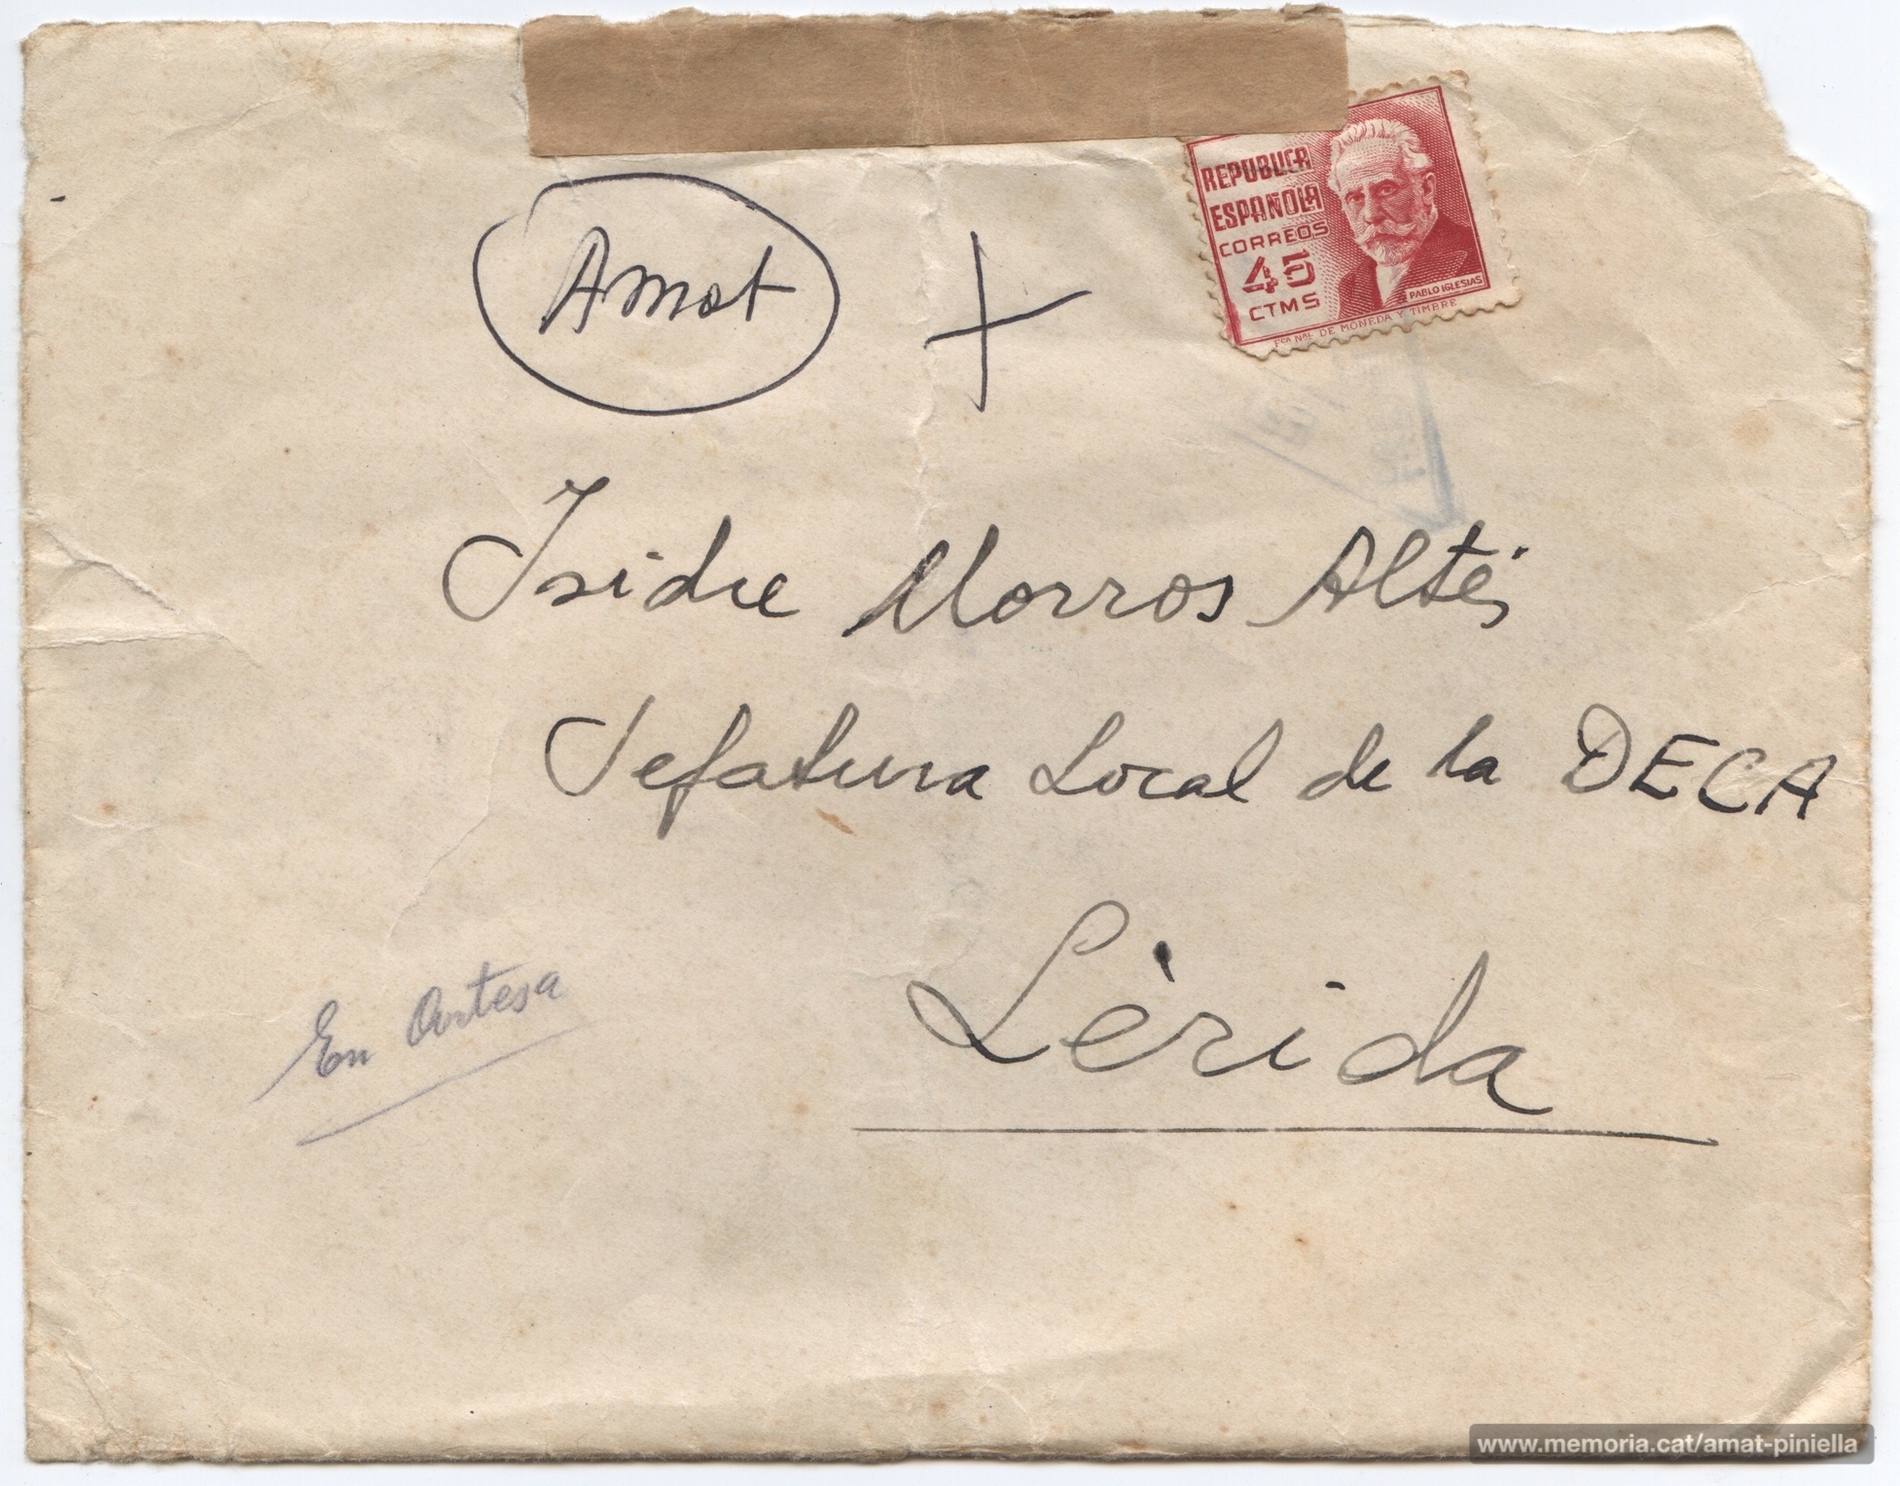 Amat
REPUBLICA
ESPAÑOLA
CORREOS
45
CTMS
PABLO IGLESIAS
FCA NAL DE MONEDA Y TIMBRE
Isidre Morros Altés
Jefatura Local de la DECA
Lèrida
En Artesa
www.memoria.cat/amat-piniella